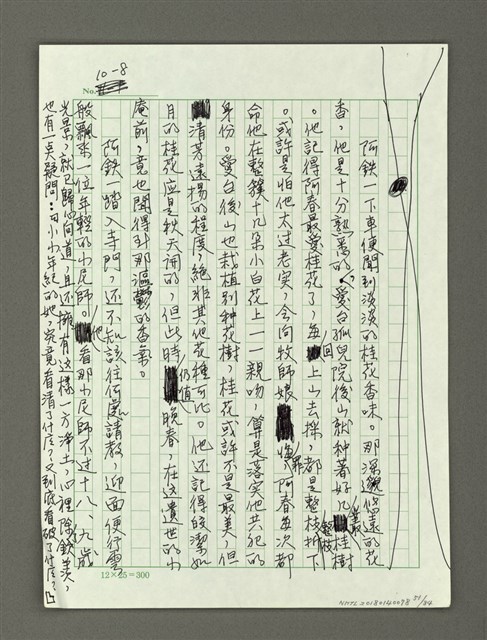 10-8
No.
阿鉄一下車便聞到淡淡的桂花香味。那深邃悠遠的花
香,他是十分熟悉的,愛台孤兒院後山就种著好几叢桂樹
。他記得阿春最愛桂花了,每回上山去採,都是整枝整枝折下
。或許是怕他太过老实,会向牧師娘悔罪,阿春每次都
命他在整簇十几朵小白花上一一親吻,算是落实他共犯的
身份。愛台後山也栽植別种花樹,桂花或許不是最美,但
清芳遠揚的程度,絕非其他花種可比。他还記得皎潔如
月的桂花应是秋天開的,但此時仍值晚春,在这遺世的小
庵前,竟也聞得到那濃鬱的香氣。
阿鉄一踏入寺門,还不知該往何處請教,迎面便行雲
般飄來一位年輕的小尼師。他看那小尼師不过十八、九歲
光景,就已歸心向道,且还擁有这樣一方淨土,心裡除欽羡,
也有一点疑問:由小小年紀的她,究竟看清了什庅?又到底看破了什庅?
12×25=300
NMTL 20180140098 80/84